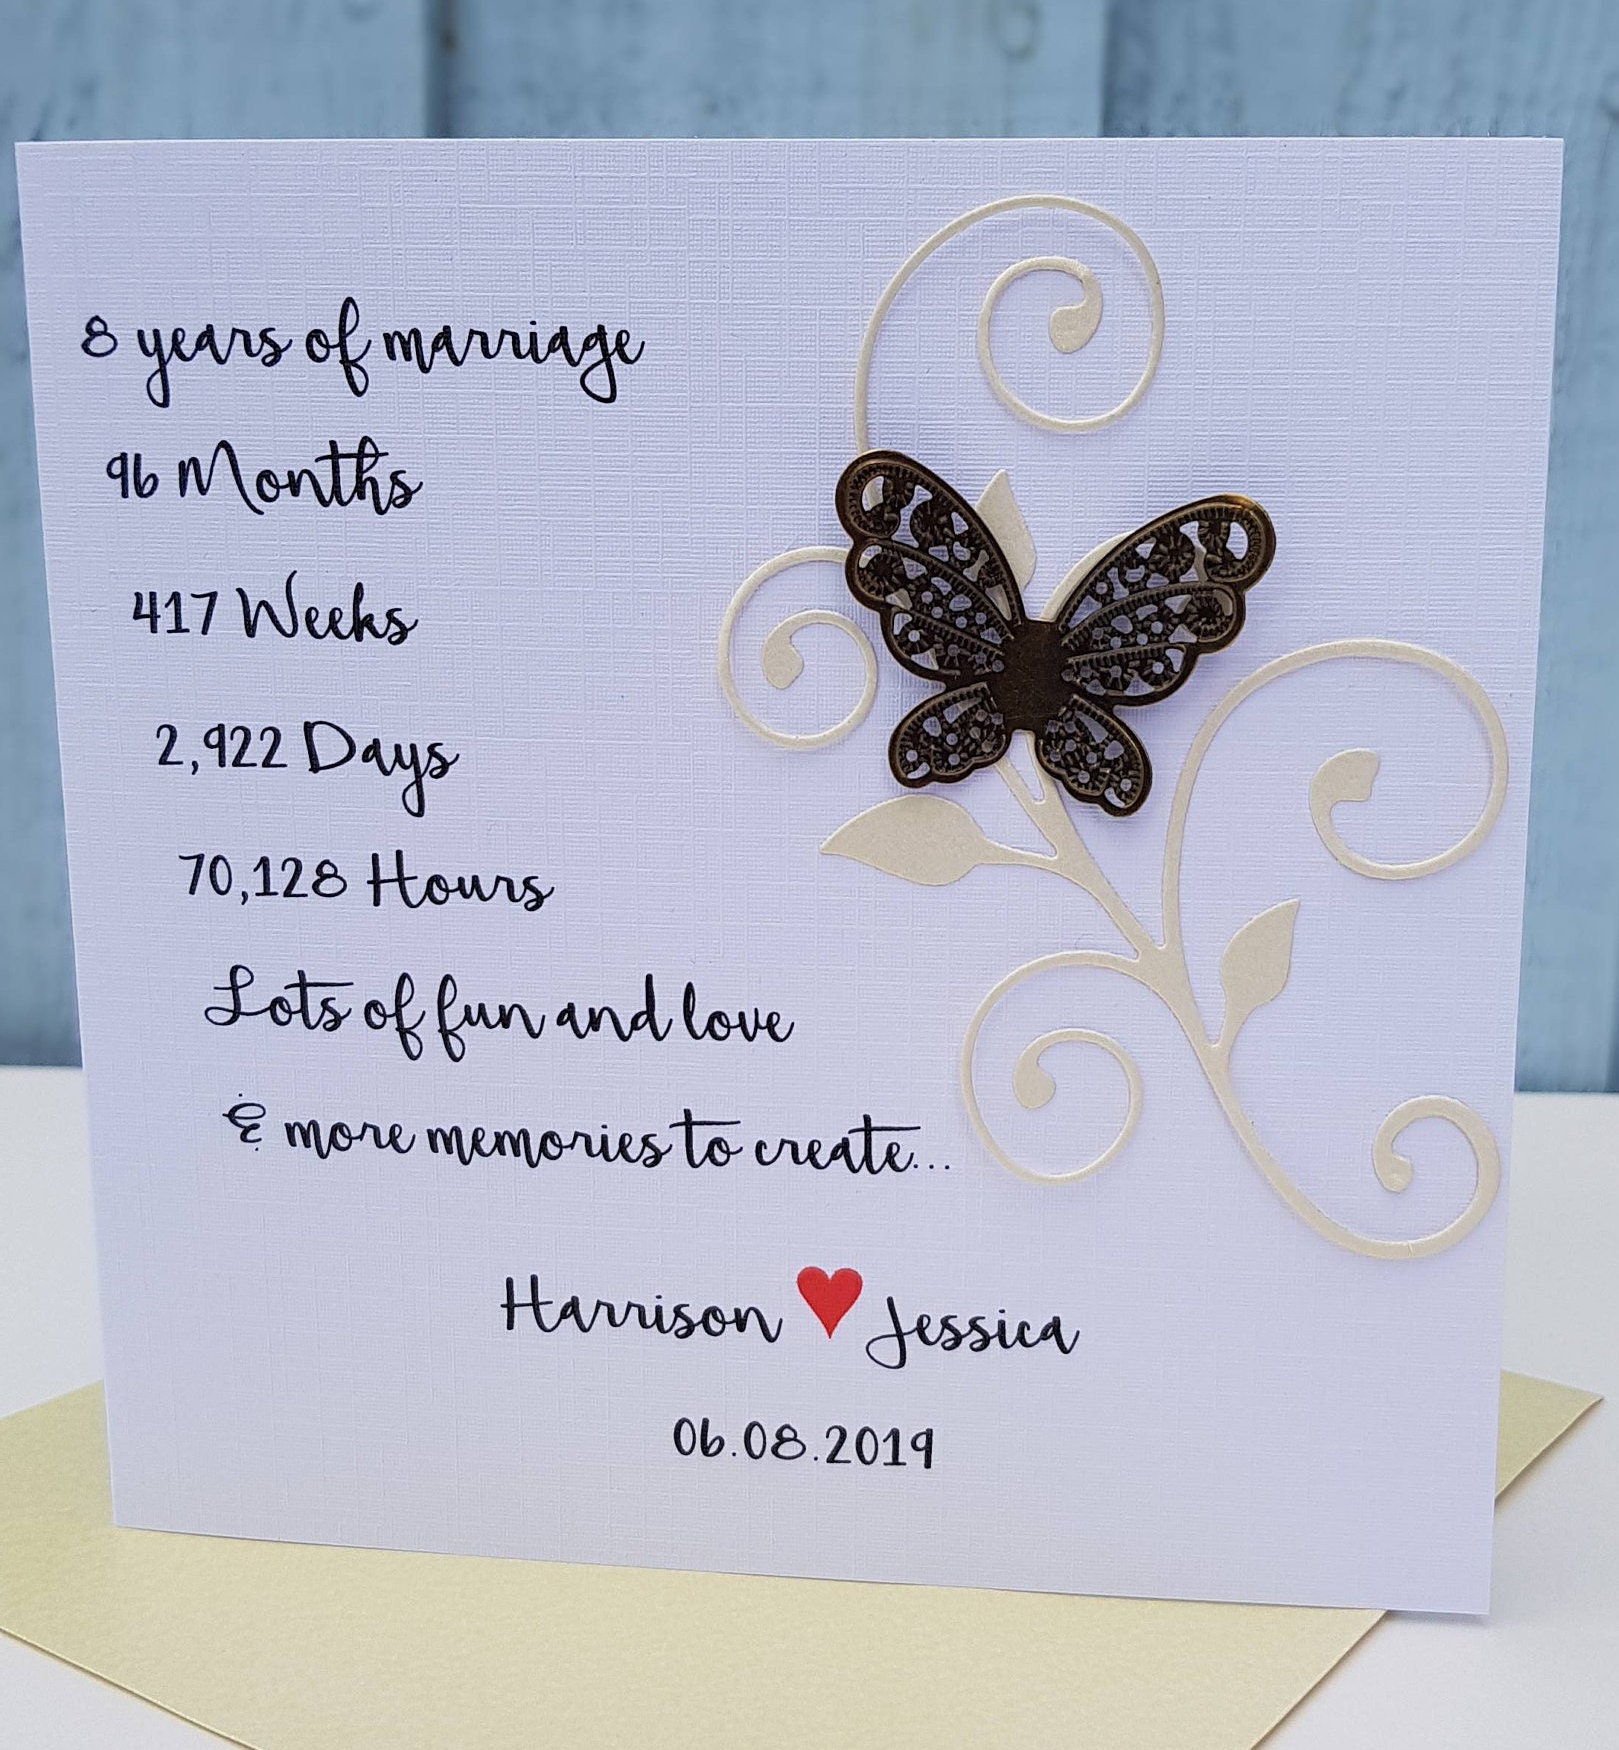 8 years of marriage
96 Months
417 Weeks
2,922 Days
70,128 Hours
Lots of fun and love
& more memories to create...
Harrison ♥ Jessica
06.08.2019